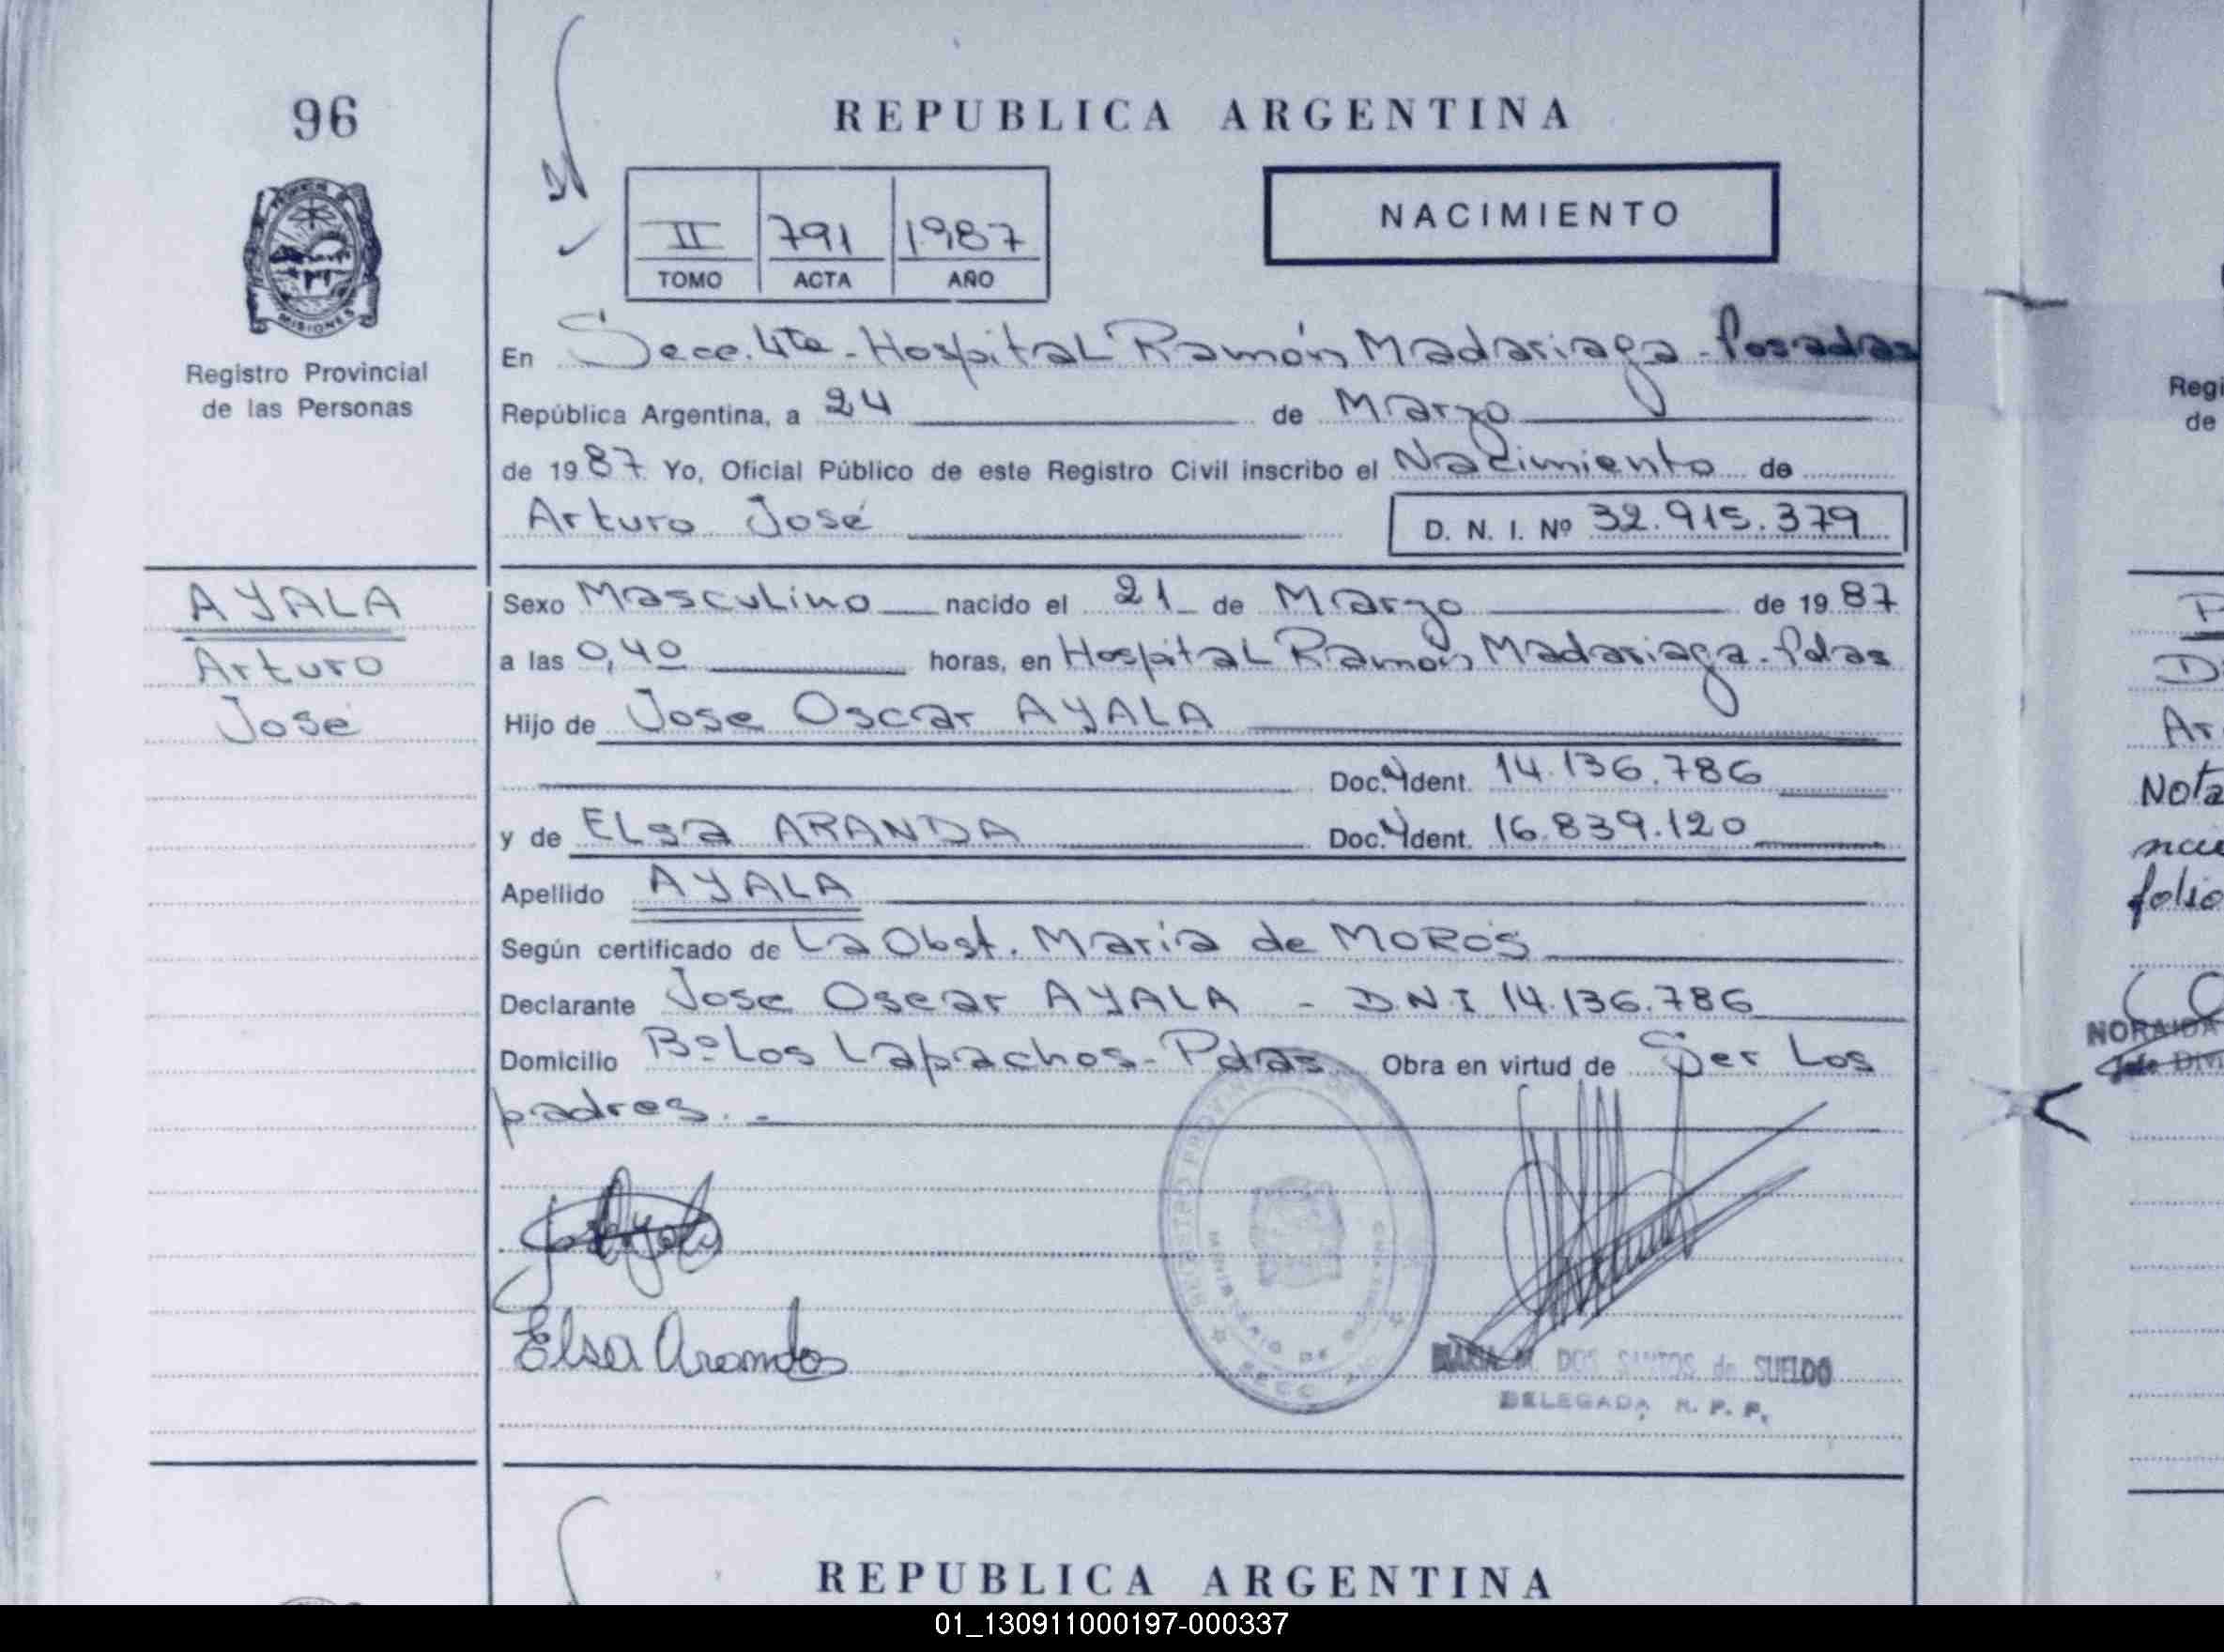 96
REPUBLICA ARGENTINA
II 791 1987
TOMO ACTA AÑO
NACIMIENTO
MISIONES
Registro Provincial
de las Personas
En Secc. 4ta - Hospital Ramón Madariaga - Posadas
República Argentina, a 24 de Marzo
de 1987 Yo, Oficial Público de este Registro Civil inscribo el Nacimiento de
Arturo José D. N. I. Nº 32.915.379
AYALA
Arturo
José
Sexo Masculino nacido el 21 de Marzo de 1987
a las 0,40 horas, en Hospital Ramón Madariaga - Pdas
Hijo de Jose Oscar AYALA
Doc. Ident. 14.136.786
y de ELsa ARANDA Doc. Ident. 16.839.120
Apellido AYALA
Según certificado de La Obst. María de MOROS
Declarante Jose Oscar AYALA - D.N.I 14.136.786
Domicilio Bº Los Lapachos - Pdas Obra en virtud de Ser Los
padres. -
Elsa Aranda
MARIA M. DOS SANTOS de SUELDO
DELEGADA R. P. P.
REPUBLICA ARGENTINA
Regi
de
Nota
folio
NORAIDA
01_130911000197-000337